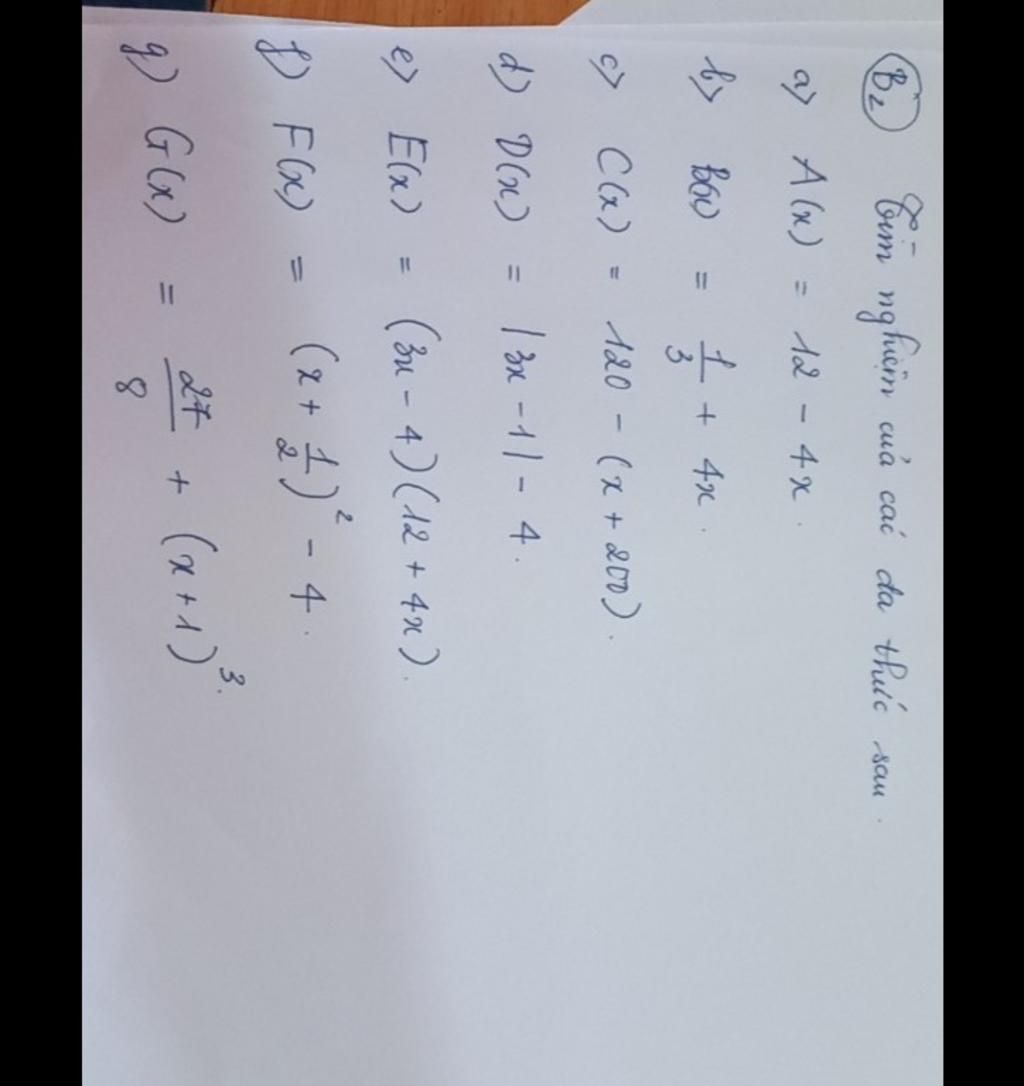 B2 Tìm nghiệm của các đa thức sau.
a) A(x) = 12 - 4x.
b) B(x) = 1/3 + 4x.
c) C(x) = 120 - (x + 200).
d) D(x) = |3x - 1| - 4.
e) E(x) = (3x - 4)(12 + 4x).
f) F(x) = (x + 1/2)² - 4.
g) G(x) = 27/8 + (x + 1)³.